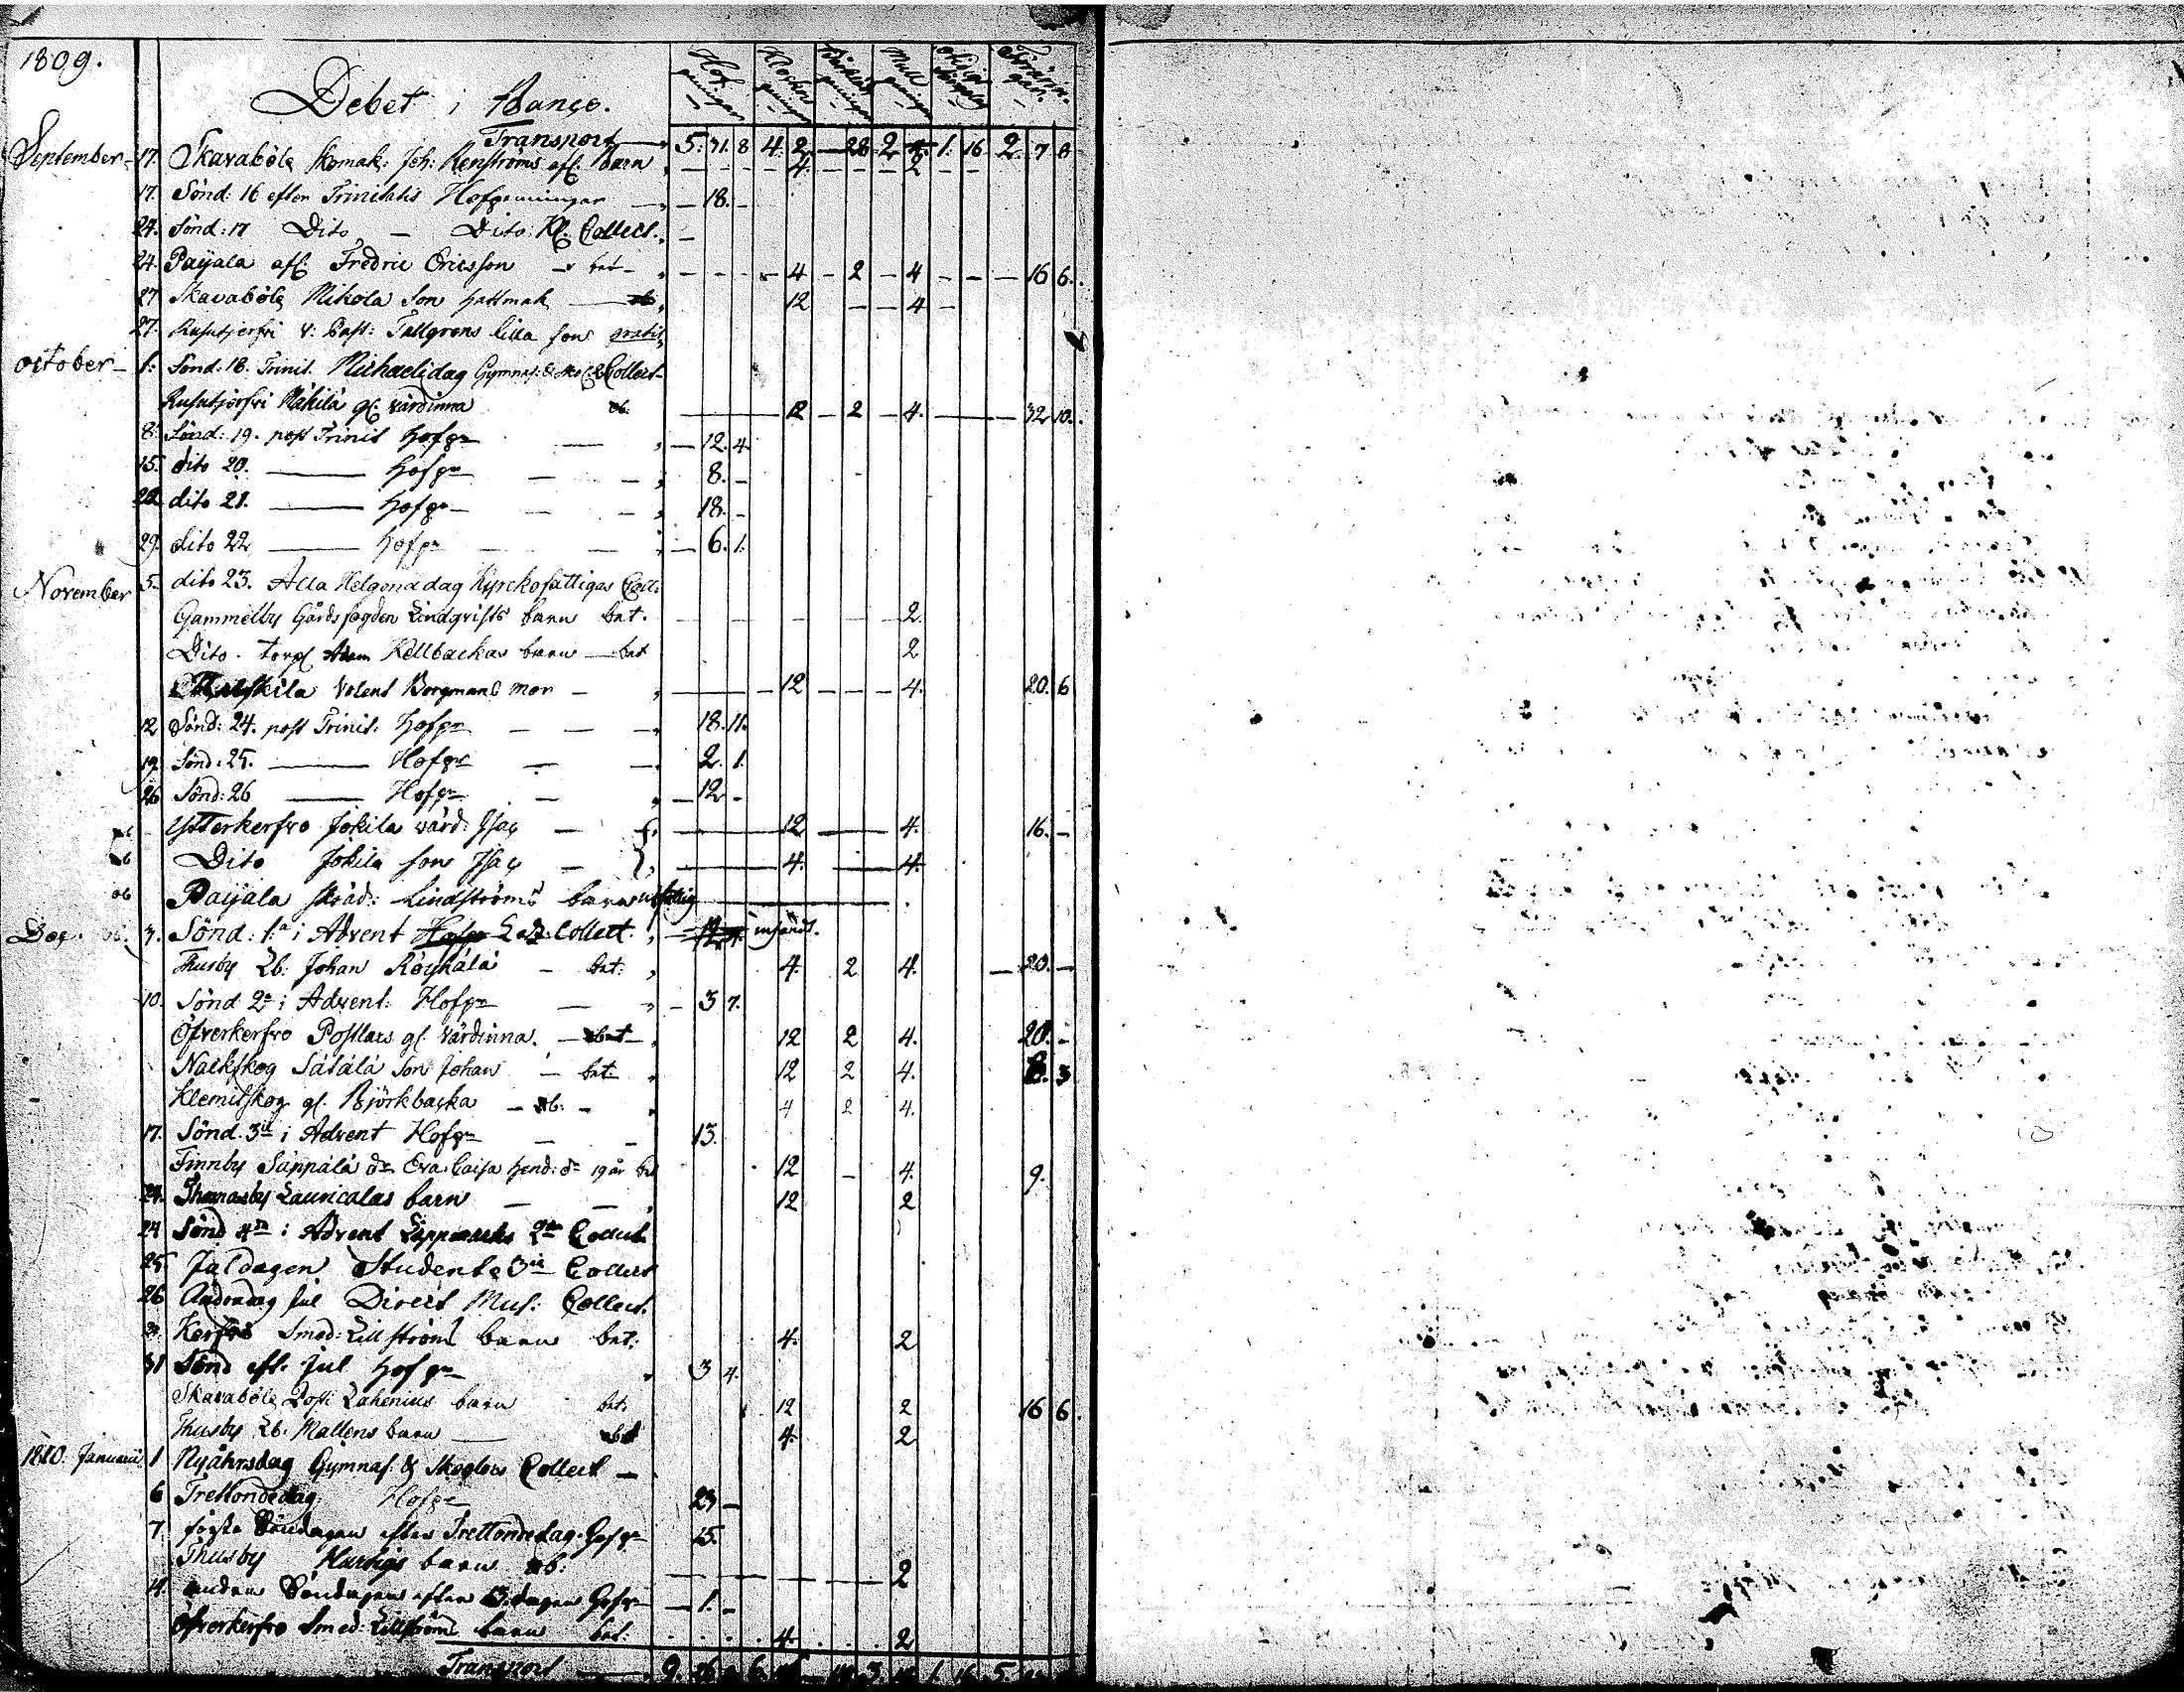 1809.
Debet i Banço.
Hof peningar
Klockors peningar
Mull peningar
Föräringar.
Transport 5. 31. 8 4. 2 28 2 1. 16 2. 7 8
September 17. Skavaböle skomak: Joh: Renströms afl. barn 4. 2
17. Sönd: 16 efter Trinitatis Hofpenningar 18. -
24. Sönd: 17 Dito - Dito Kl. Collect.
24. Paijala afl: Fredric Ericsson bet 4 2 4 16 6.
27 Skavaböle Mikola Son hattmak ob 12 4
27. Rusutjerfvi v: Past: Tallgrens lilla son gratis
October 1: Sönd: 18. Trinit. Michaelidag Gymnas: & Skol: Collect
Rusutjerfvi Näkilä gl. värdinna ob. 12 2 4. 32 10.
8. Sönd: 19. post Trinit Hofpr 12. 4.
15. dito 20. Hofpr 8. -
22 dito 21. Hofpr 18. -
29. dito 22 Hofpr 6. 1.
November 5. dito 23. Alla Helgona dag Kyrckofattigas Coll:
Gammelby Gårdsfogden Lindqvists barn bet. 2.
Dito. torp Adam Källbackas barn bet 2
Volent Borgmans mor 12 4. 20. 6
12 Sönd: 24. post Trinit: Hofpr 18. 11.
19. Sönd: 25. Hofpr 2. 1.
26 Sönd: 26 Hofpr 12 -
ob Ytterkerfvo Jokila värd: Isaç 12 4. 16. -
ob Dito Jokila son Isaç 4. 4.
ob Paijala skräd: Lindströms barn utfattig
Deç. ob. 3. Sönd: 1a i Advent Hofpr Collect. insändt.
Thusby Lb: Johan Röykälä bet: 4. 2 4. 20. -
10. Sönd: 2a i Advent: Hofpr 3 7.
Öfverkerfvo Postlars gl. värdinna. bet 12 2 4. 20. -
Nackskog Sätälä Son Johan bet 12 2 4. 3
Klemetskog gl. Björkbacka ob: 4 2 4.
17. Sönd. 3ie i Advent Hofpr 13.
Finnby Säppälä dr Eva Caisa hend: dr 19 år bet 12 4. 9.
24. Thomasby Lauricalas barn 12 2
24 Sönd 4de i Advent Lappmarks 2dra Collect
25 Juldagen Studente 3ie Collect
26 Andradag jul Direct Mus: Collect.
Kerfvo Smed: Lillströms barn bet: 4. 2
31 Sönd eft. jul Hofpr 3 4.
Skavaböle Post: Lahenius barn bet: 12 2 16 6.
Thusby Lb: Mattens barn 4. 2
1810. Januarii 1 Nyåhrsdag Gymnas: & Skolors Collect
6 Trettondedag Hofpr 23 -
7 första Söndagen efter Trettondedag. Hofpr 15.
Thusby barn ob: 2
14. andra Söndagen efter 13. dagen Hofpr 1. -
Öfverkerfvo Smed: Lillströms barn bet: 4. 2
Transport 9.